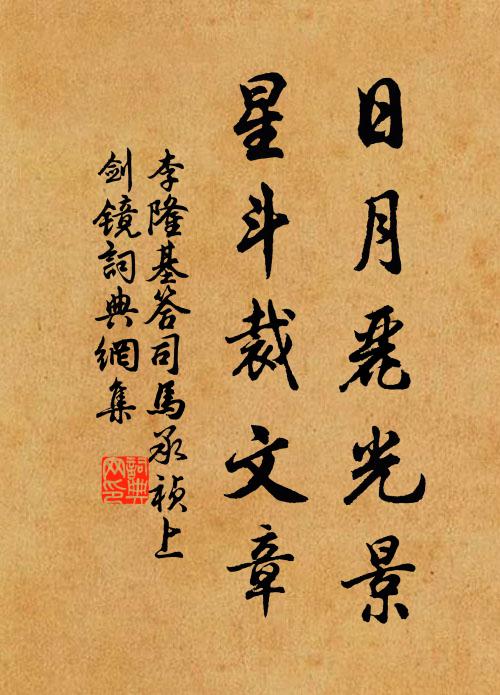 日月麗光景
星斗裁文章
李隆基答司馬承禎上
劍鏡詞典網集
詞典
网印